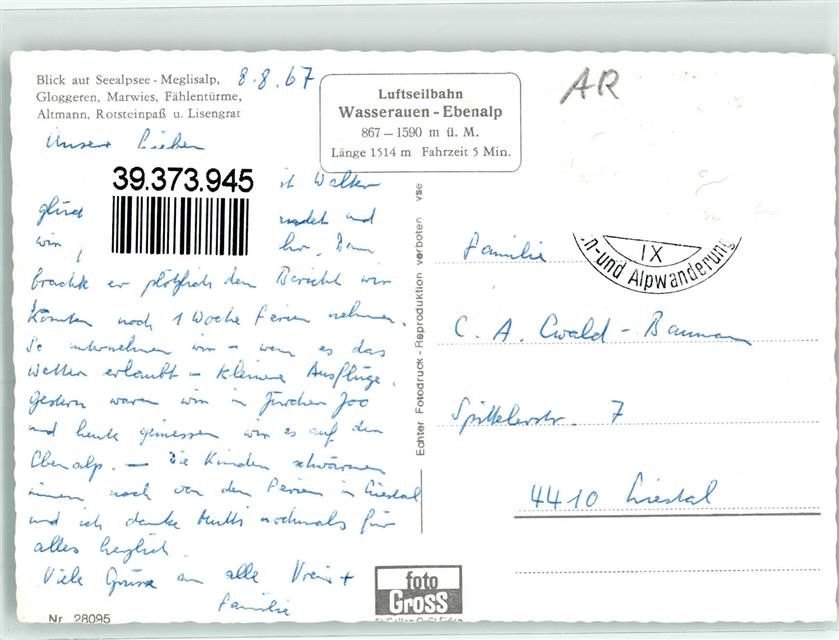 Blick auf Seealpsee - Meglisalp,
Gloggeren, Marwies, Fählentürme,
Altmann, Rotsteinpaß u. Lisengrat
8.8.67
Luftseilbahn
Wasserauen - Ebenalp
867 – 1590 m ü. M.
Länge 1514 m Fahrzeit 5 Min.
AR
Unsere Lieben
39.373.945
Walter
und
wir
brachte er plötzlich den Bericht wir
könnten noch 1 Woche Ferien nehmen.
So unternehmen wir – wenn es das
Wetter erlaubt – kleinere Ausflüge.
Gestern waren wir im Zürcher Zoo
und heute geniessen wir es auf der
Ebenalp. — Die Kinder schwärmen
immer noch von den Ferien in Liestal
und ich danke Mutti nochmals für
alles herzlich.
Viele Grüsse an alle Vreni +
Familie
Echter Fotodruck - Reproduktion verboten
n-und Alpwanderung
IX
Familie
C. A. Ewald - Baumann
Spittelerstr. 7
4410 Liestal
foto
Gross
Nr. 28095